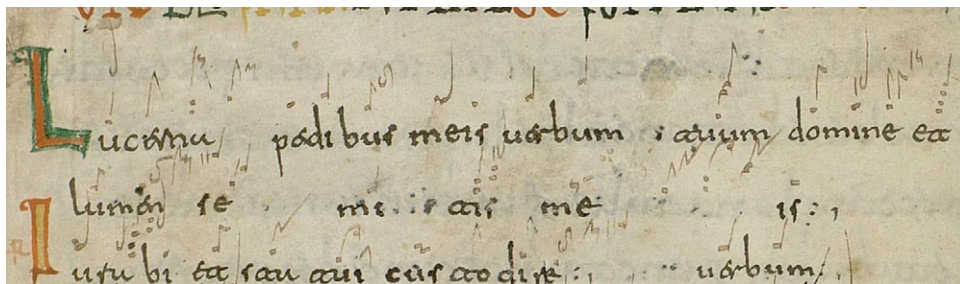 Lucerna pedibus meis uerbum tuum domine et
lumen se mi tis me is
Iurabi et statui custodire uerbum